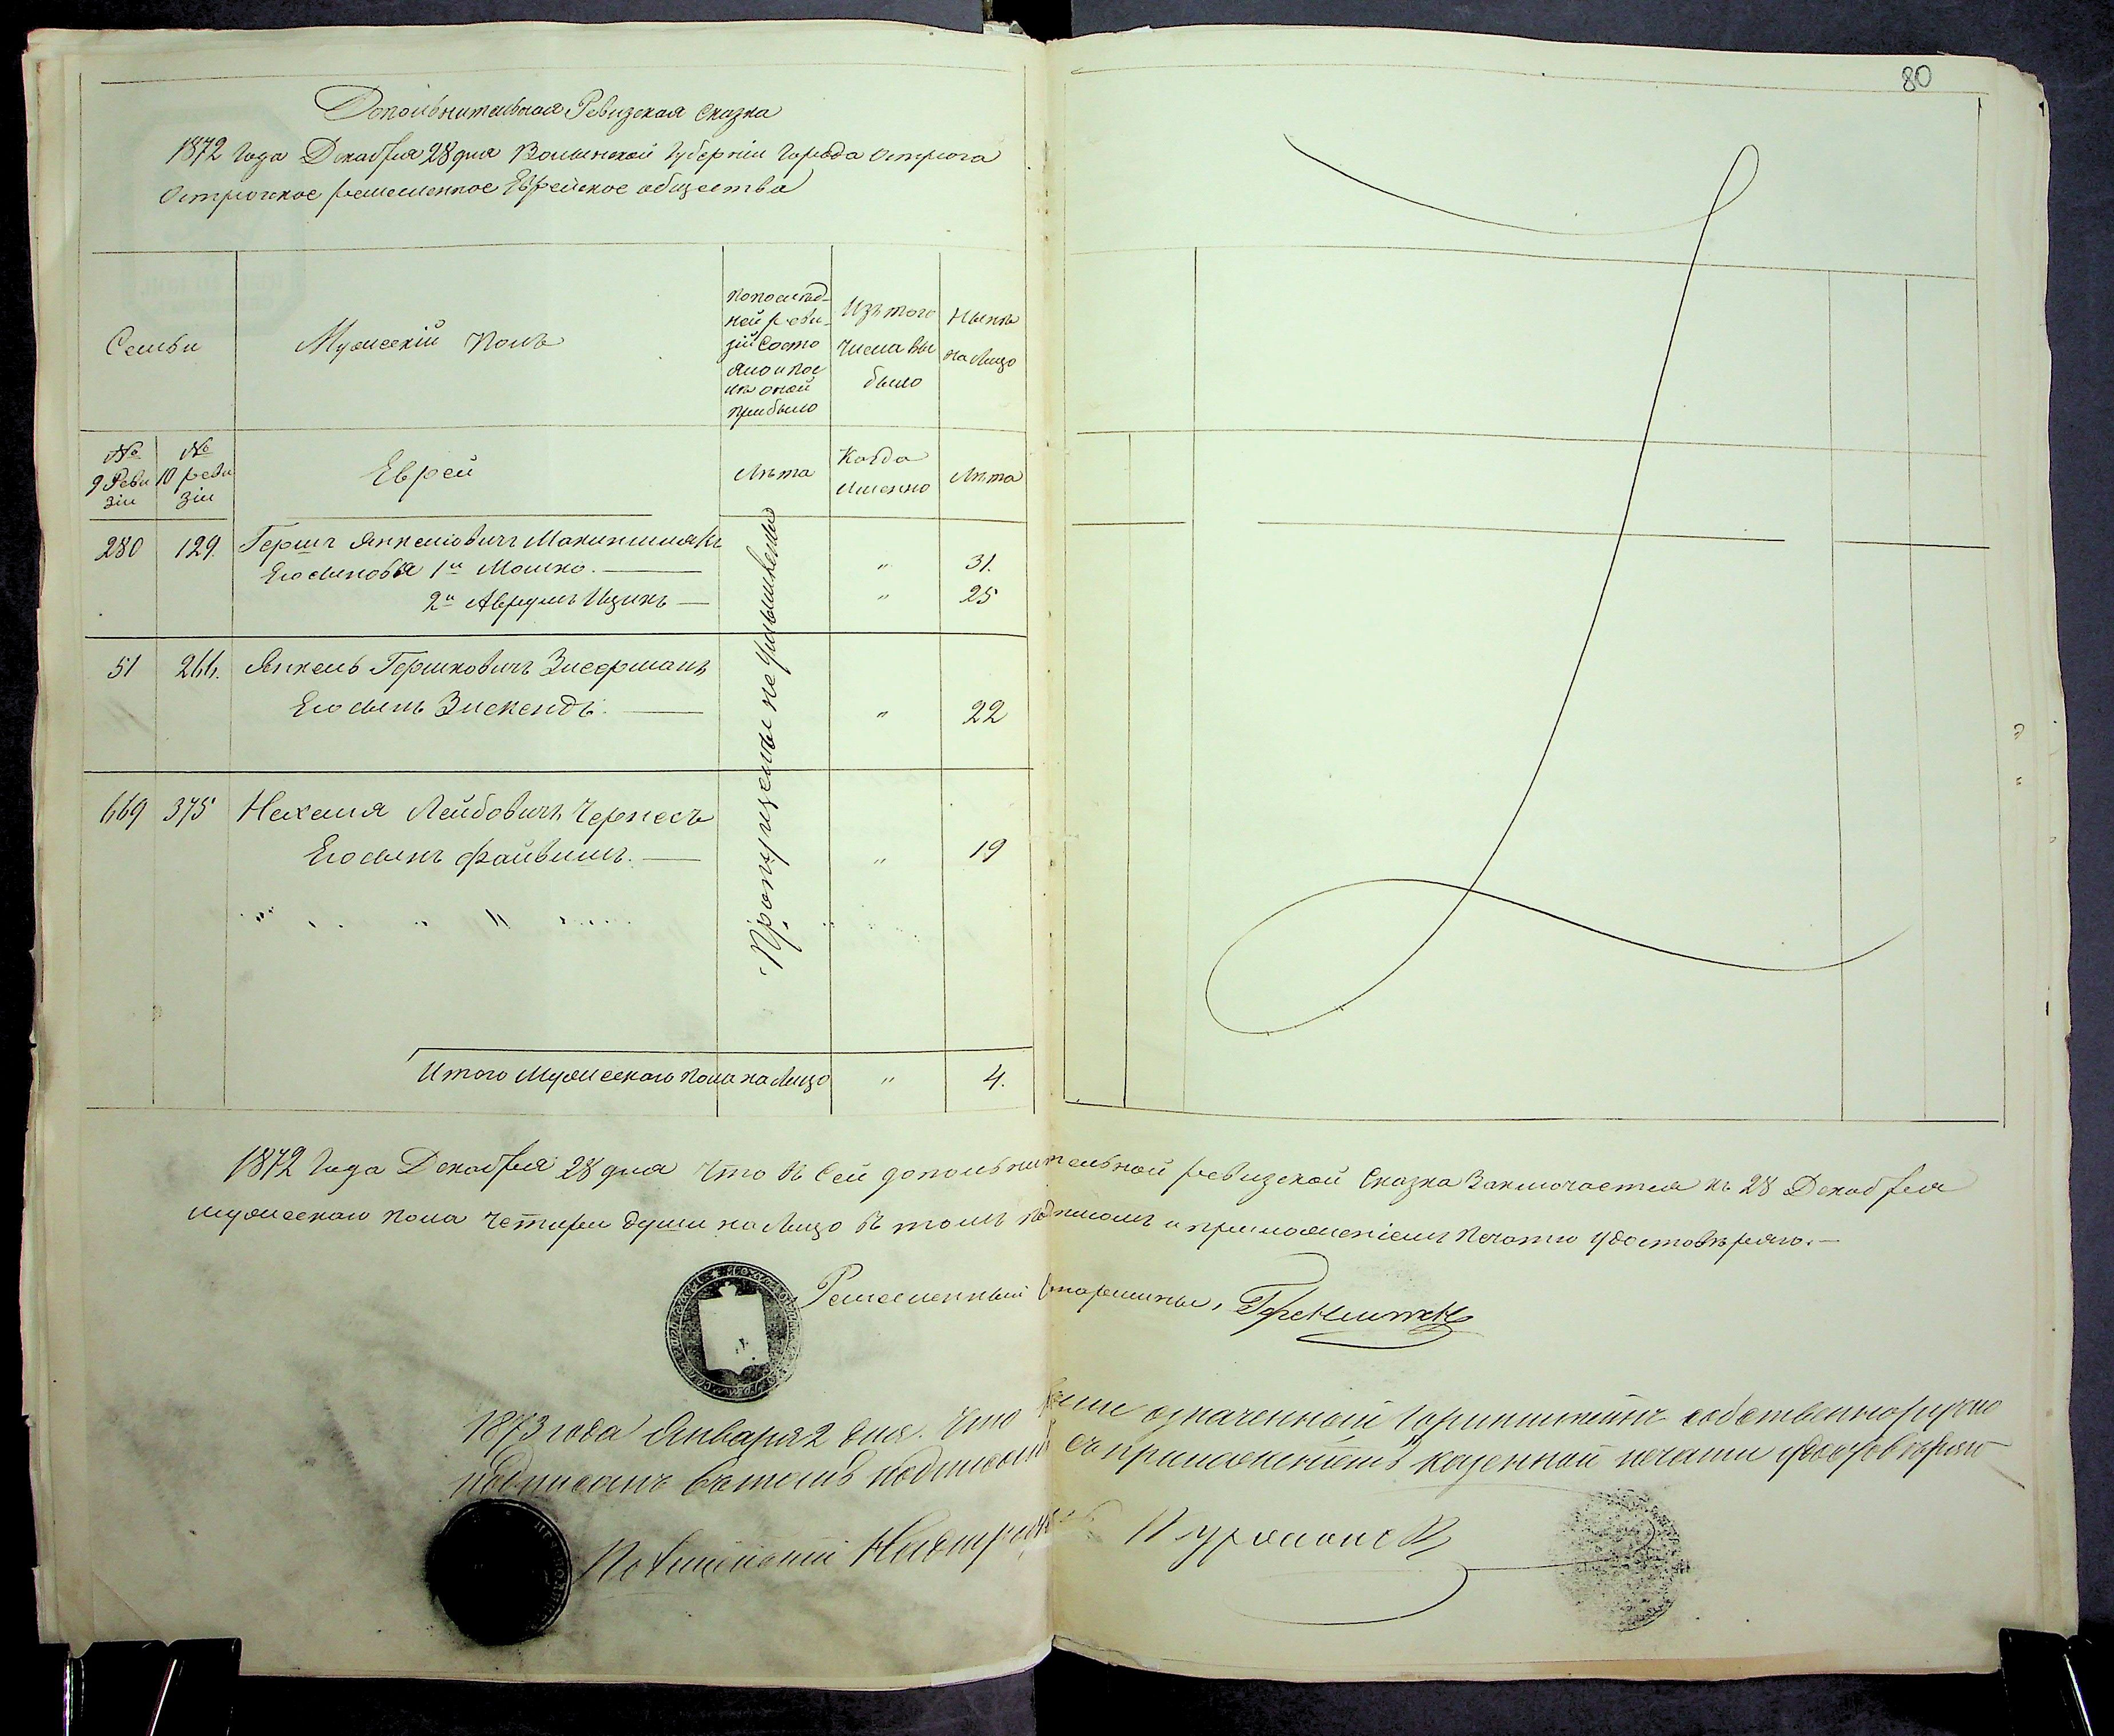 80
Дополнительная Ревизская Сказка
1872 Года Декабря 28 дня Волынской Губернiи Города Острога
Острожское ремесленное Еврейское общества
Семьи
Мужескiй Полъ
Попослед-
ней реви-
зiи Состо
яло и пос
лѣ оной
прибыло
Изъ того
Числа Вы
было
Нынѣ
на Лицо
№
9 Реви
зiи
№
10 реви
зiи
Еврей
Лѣта
Когда
Именно
Лѣта
280 129. Гершъ Янкелiовичъ
Его сыновья 1й Мошко. — " 31.
2й Аврумъ Ицикъ — " 25
51 244. Янкель Гершковичъ Зисерманъ
Его сынъ Зискендъ. — " 22
469 375 Нехемя Лейбовичъ Чернесъ
Его сынъ Файвишъ. — " 19
Пропущены не умышленно
Итого Мужескаго пола на Лицо " 4.
1872 Года Декабря 28 дня Что въ Сей дополнительной ревизской Сказка Заключается къ 28 Декабря
мужескаго пола Четыри души на Лицо въ томъ подписомъ и приложенiемъ Печати удостовѣряю. —
Ремесленный Старшины,
1873 года Января 2 дня. Что выше означенный собственноручно
подписалъ въ томъ подписомъ съ приложенiемъ казенной печати удостовѣряю